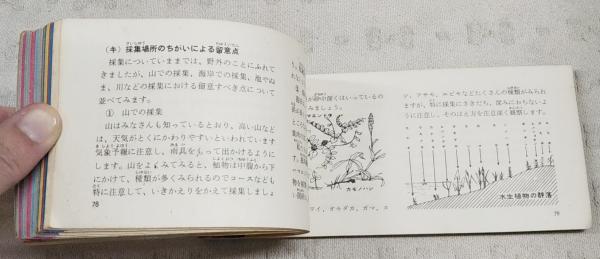 (キ) 採集場所のちがいによる留意点
採集についていままでは、野外のことにふれて
きましたが、山での採集、海岸での採集、池やぬ
ま、川などの採集における留意すべき点について
並べてみます。
① 山での採集
山はみなさんも知っているとおり、高い山など
は、天気がとくにかわりやすいといわれています
気象予報に注意し、雨具をもって出かけるように
します。山をよくみてみると、植物は中腹から下
にかけて、種類が多くみられるのでコースなども
特に注意して、いきかえりをかえて採集しましょ
78
カモノハシ
マイ、オモダカ、ガマ、エ
ゾ、アサザ、エビモなどたくさんの種類がみられ
ますが、特に採集にさきだち、深みにおちないよ
うに注意し、そのはえ方を注意深く観察します。
水生植物の群落
79